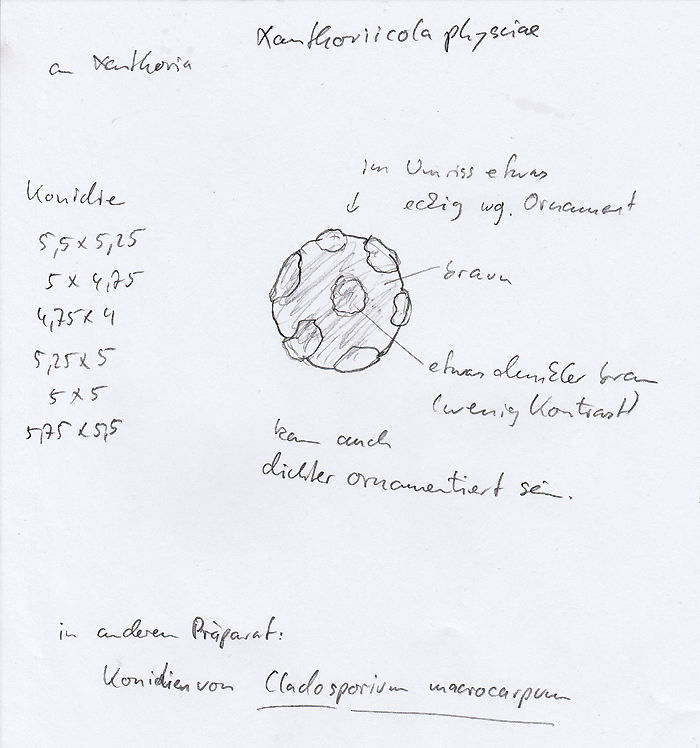 Xanthoriicola physciae
an Xanthoria
im Umriss etwas
eckig wg. Ornament
Konidie
5,5 x 5,25
5 x 4,75
4,75 x 4
5,25 x 5
5 x 5
5,75 x 5,5
braun
etwas dunkler braun
(wenig Kontrast)
kann auch
dichter ornamentiert sein.
in anderem Präparat:
Konidien von Cladosporium macrocarpum